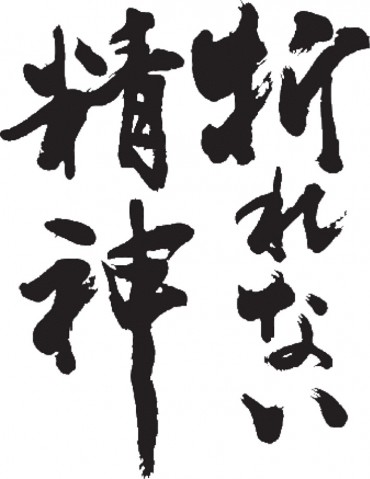 折れない
精神